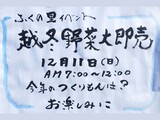 ふくの里イベント
越冬野菜大即売
12月11日(日)
AM7:00~12:00
今年のつくりもんは?
お楽しみに